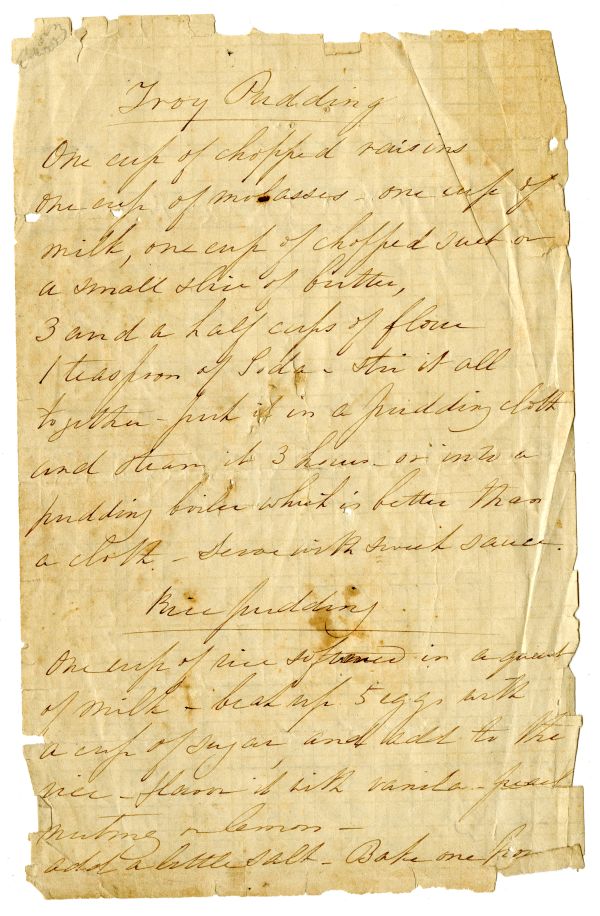 Troy Pudding
One cup of chopped raisins
one cup of molasses - one cup of
milk, one cup of chopped suet or
a small slice of butter,
3 and a half cups of flour
1 teaspoon of Soda - stir it all
together - put it in a pudding cloth
and steam it 3 hours - or into a
pudding boiler which is better than
a cloth - Serve with sweet sauce.
Rice pudding
One cup of rice softened in a quart
of milk - beat up 5 eggs with
a cup of sugar, and add to the
rice - flavor it with vanila -
nutmeg or lemon -
add a little salt - Bake one